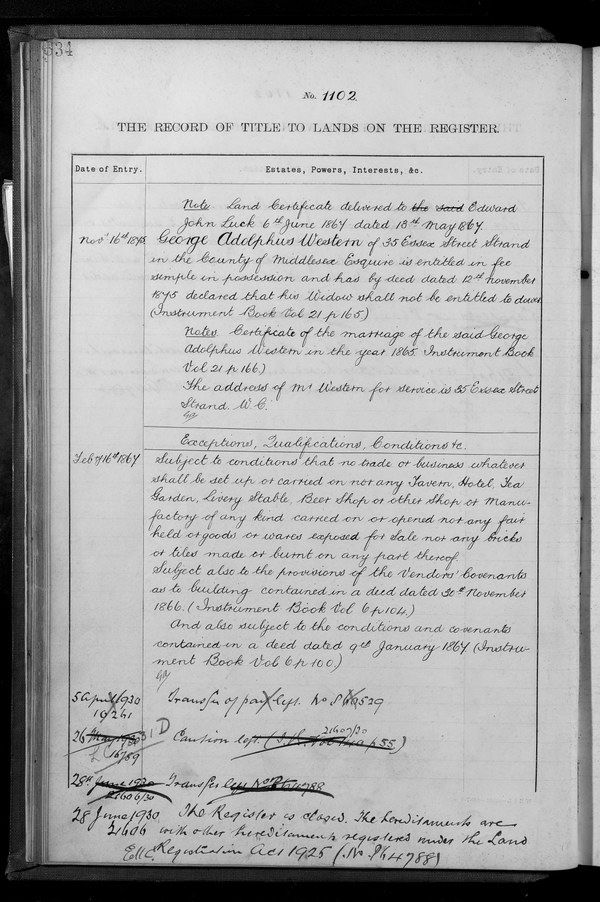 534
No. 1102.
THE RECORD OF TITLE TO LANDS ON THE REGISTER.
Date of Entry. Estates, Powers, Interests, &c.
Note. Land Certificate delivered to the said Edward
John Luck 6th June 1867 dated 18th May 1867.
Novr 16th 1875. George Adolphus Western of 35 Essex Street Strand
in the County of Middlesex Esquire is entitled in fee
simple in possession and has by deed dated 12th November
1875 declared that his Widow shall not be entitled to dower
(Instrument Book Vol 21. p 165.)
Notes. Certificate of the marriage of the said George
Adolphus Western in the year 1865. Instrument Book
Vol 21 p 166.)
The address of Mr Western for service is 35 Essex Street
Strand. W.C.
Exceptions, Qualifications, Conditions &c.
Feby 16th 1867 Subject to conditions that no trade or business whatever
shall be set up or carried on nor any Tavern, Hotel, Tea
Garden, Livery Stable, Beer Shop or other Shop or Manu-
factory of any kind carried on or opened nor any fair
held or goods or wares exposed for Sale nor any bricks
or tiles made or burnt on any part thereof.
Subject also to the provisions of the Vendors' Covenants
as to building contained in a deed dated 30th November
1866. (Instrument Book Vol 6 p 104.)
And also subject to the conditions and covenants
contained in a deed dated 9th January 1867 (Instru-
ment Book Vol 6 p 100.)
5 April 1930 Transfer of part left. No P60529
19261
26 May 1930 Caution left. 21607/30
16789
28th June 1930 Transfer left No P64788
21606/30
28 June 1930. The Register is closed. The hereditaments are
21606 with other hereditaments registered under the Land
EHC Registration Act 1925 (No. P64788)